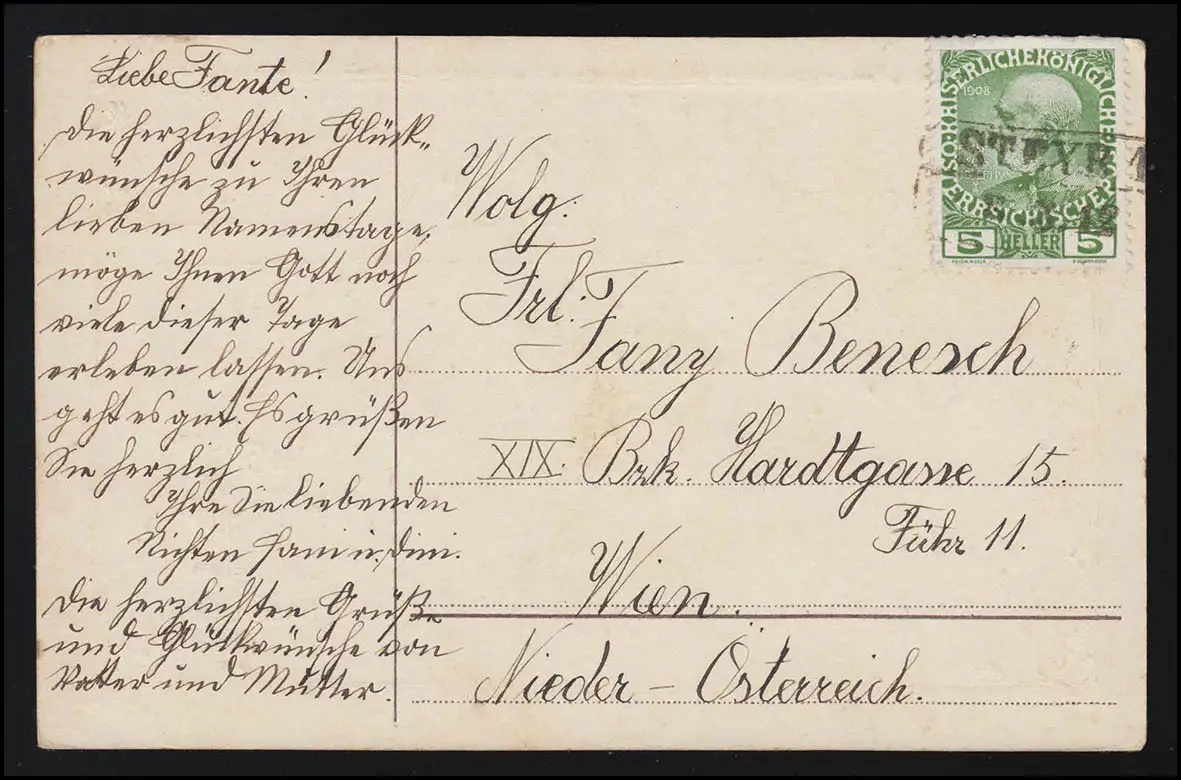 Liebe Tante!
Die herzlichsten Glück-
wünsche zu Ihren
lieben Namenstage,
möge Ihnen Gott noch
viele dieser Tage
erleben lassen. Uns
geht es gut. Es grüßen
Sie herzlich
Ihre Sie liebenden
Nichten Fani u. Dini.
Die herzlichsten Grüße
und Glückwünsche von
Vatter und Mutter.
Wolg.
Frl. Fany Benesch
XIX. Bzk. Hardtgasse 15.
Tühr 11.
Wien.
Nieder-Österreich.
KAISERLICHEKÖNIGLICHE ÖSTERREICHISCHE POST
1908
5 HELLER 5
STEYR 1
12